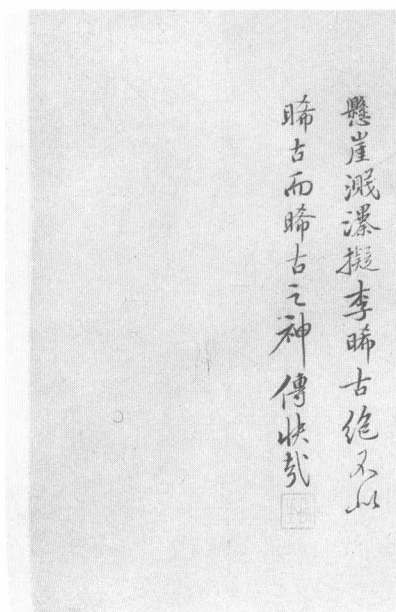 懸崖濺瀑擬李晞古絶不似
晞古而晞古之神傳快哉